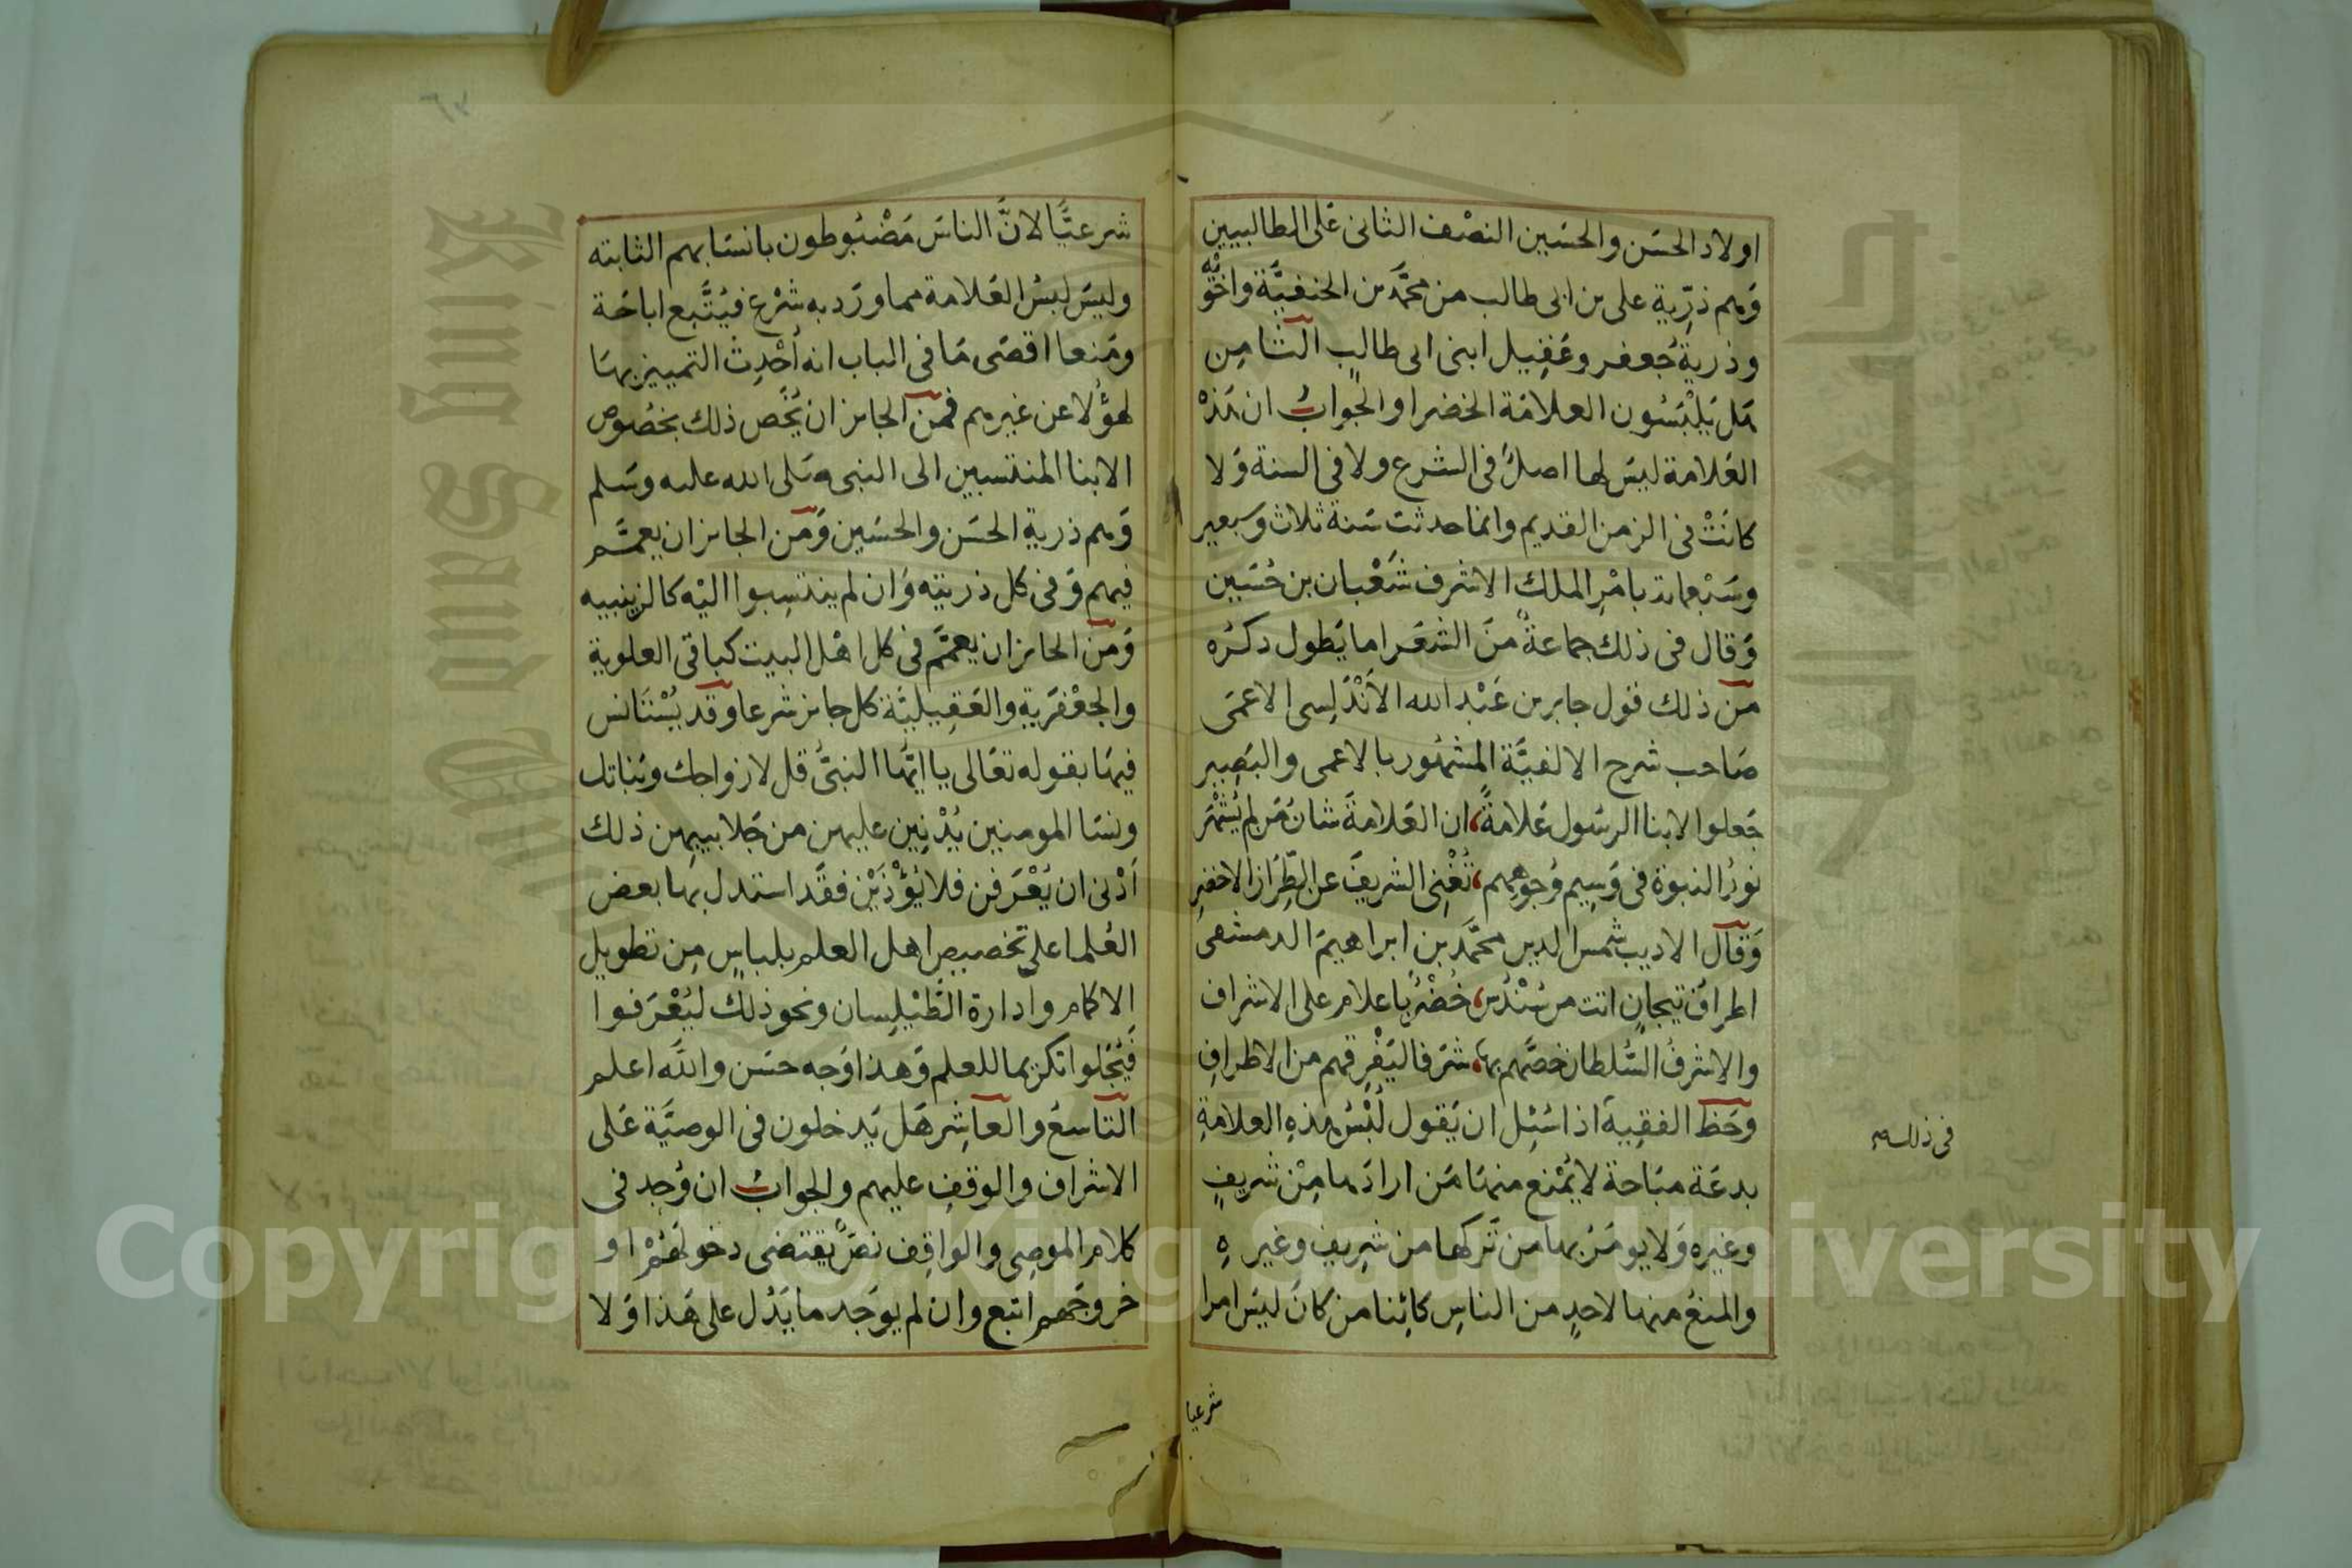 اولاد الحسَن والحسَين النصْف الثانى عَلى الطالبيين
وَهم ذرِّية على بن ابى طالب من محمَّد بن الحنفيَّة واخوته
وذرية جُعفر وعَقِيل ابنى ابى طالبٍ الثامِن
هَل يَلْبَسُون العلامَة الخضرا والجَوابُ ان هَذهْ
العَلامة ليسَ لها اصلٌ فى الشرع ولا فى السنة وَلا
كانَتْ فى الزمن القديم وانما حدثت سَنة ثلاث وسَبعين
وسَبْعماىة بامْرِ الملك الاشرف شَعْبان بن حُسَين
وَقال فى ذلك جماعةٌ منَ الشعَرا ما يَطول ذكرُه
من ذلك قول جابر بن عَبْد الله الاَنْدَلِسى الاعمَى
صَاحب شرح الالفيَّة المشهُور بالاعمى والبَصِيرِ
جَعلوا لابنا الرسُول عَلامةً، ان العَلامةَ شانُ مَن لم يُشْهَرِ
نورُ النبوة فى وَسِيم وُجوهِهم، تُغْنِى الشريفَ عن الطِّرَازِ الاخضرِ
وَقال الاديب شمس الدين محمَّد بن ابراهيمَ الدمشقىُ
فى ذلك
اطرافُ تيجانٍ اتت من سُنْدُسٍ، خُضْرٌ باعلام على الاشراف
والاشرفُ السُّلطان خصَّهم بها، شرَفا ليَفْرِقهم من الاطرافِ
وحَظ الفقِيهَ اذا سُئِل ان يَقول لُبْسُ هذهِ العلامةِ
بدعَة مبَاحة لا يُمْنع منهَا مَن ارادَها مِنْ شريفٍ
وغيره وَلا يومَرُ بها من تَركها من شريفٍ وغيرهِ
والمنعُ منها لاحدٍ من الناسِ كائِنا من كانَ ليسَ امرا
شرعيا
شرعيًّا لانَّ الناسَ مَضْبُوطون بانسَابهم الثابته
وليسَ لبسُ العَلامة مما ورَد به شرْع فيُتَّبع اباحَة
ومَنعا اقصَى مَا فى الباب انه أُحْدِثَ التمييز بهَا
لهؤُلا عن غيرهم فمن الجائز ان يُخَص ذلك بخصُوص
الابنا المنتسبين الى النبى صَلى الله عليه وسَلم
وَهم ذرية الحسَن والحسَين وَمن الجائز ان يعمَّم
فيهم وَفى كل ذريته وَان لم ينتسِبوا اليْه كالزينبيه
وَمن الجائز ان يعمَّم فى كل اهْل البيت كباقى العلوية
والجعْفَرية والعَقِيليَّة كل جائز شرعا وقد يُسْتَانس
فيهَا بقوله تعَالى يا ايُّها النبىُّ قل لازواجك وبَناتك
ونسَا المومنين يُدْنِين عليهن من جَلابيبهن ذلك
اَدْنى ان يُعْرَفن فلا يُؤْذَيْن فقد استدل بهَا بعض
العُلما على تخصيصِ اهل العلم بلباسٍ مِن تطويل
الاكمام وادارة الطَّيْلِسان ونحو ذلك ليُعْرَفوا
فيُجَلوا تكريما للعلم وَهذا وَجه حسَن واللَّه اعلم
التاسعُ والعاشِر هَل يَدخلون فى الوصيَّة عَلى
الاشراف والوقفِ عليهم والجوابُ ان وُجد فى
كلام الموصِى والواقِف نصٌّ يقتضى دخولهُمْ او
خروجَهم اتبع وان لم يوَجد ما يَدُل على هَذا وَلا